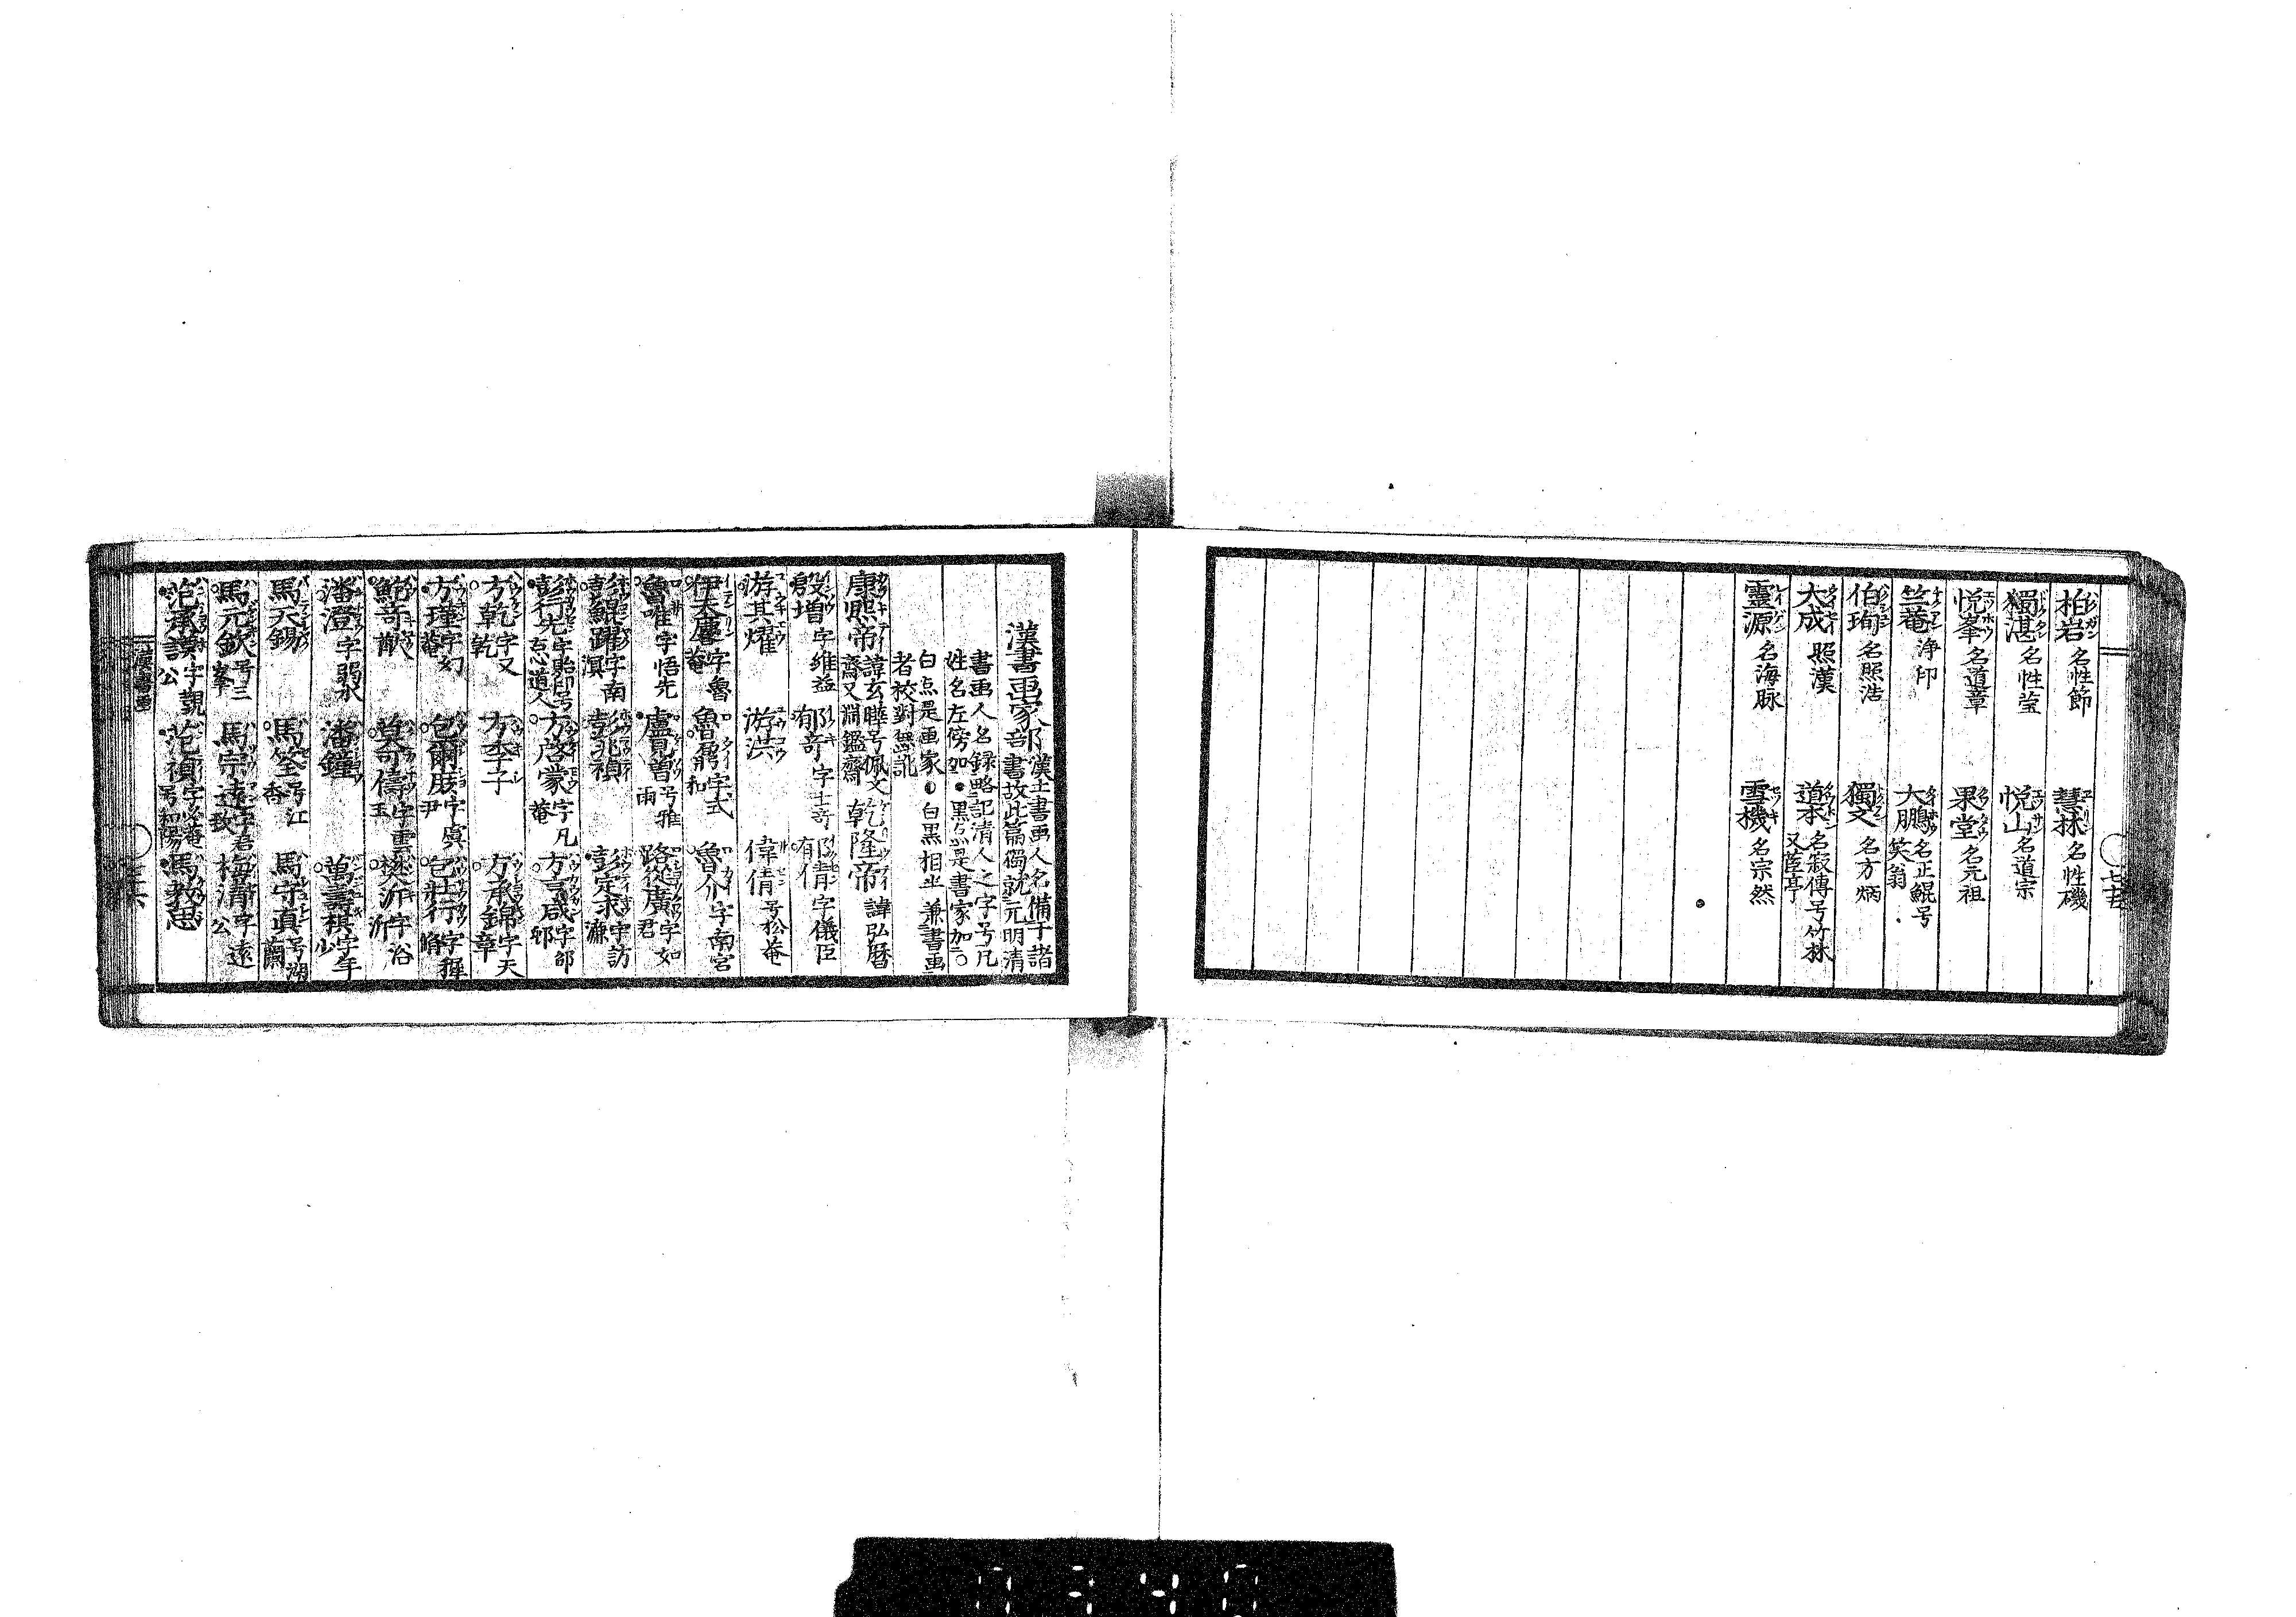 柏岩 名性節 慧林 名性磯
獨湛 名性瑩 悦山 名道宗
悦峯 名道章 果堂 名元祖
竺菴 浄印 大鵬 名正鯤号笑翁
伯珣 名照浩 獨文 名方炳
大成 照漢 道本 名寂傳号竹林
靈源 名海脉 雪機 名宗然
漢書畫家部 漢土書画人名備于諸書故此篇獨就元明清
書画人名録略記清人之字号凡
姓名左傍加●黒点是書家加○
白点是画家●○白黒相並兼書画
者校對無訛
康熙帝 諱玄曄号佩文齋又淵鑑齋 乾隆帝 諱弘暦
殷増 字維益 郁奇 字士奇 郁倩 字儀臣
游其燿 游洪 偉倩 号松菴
伊天麐 字魯菴 魯鼐 字式和 魯介 字南宮
魯唯 字悟先 盧見曽 号雅雨 路從廣 字如君
彭鯤躍 字南溟 彭兆禎 彭定求 字訪濂
彭行先 字貽卽号忘道人 方啓蒙 字凡菴 方亨咸 字邵邨
方乾 字又乾 方季子 方承錦 字天章
方瑾 字幻菴 包爾庚 字虞尹 包壯行 字穉脩
鮑奇 莫奇儔 字雲玉 樊沂 字浴沂
潘澄 字弱水 潘鐘 萬壽祺 字年少
馬天錫 馬荃 号江香 馬守真 号湖蘭
馬元欽 号三峯 馬宗遠 字君致 梅清 字遠公
范承謨 字覲公 范禎 馬教思
漢書画